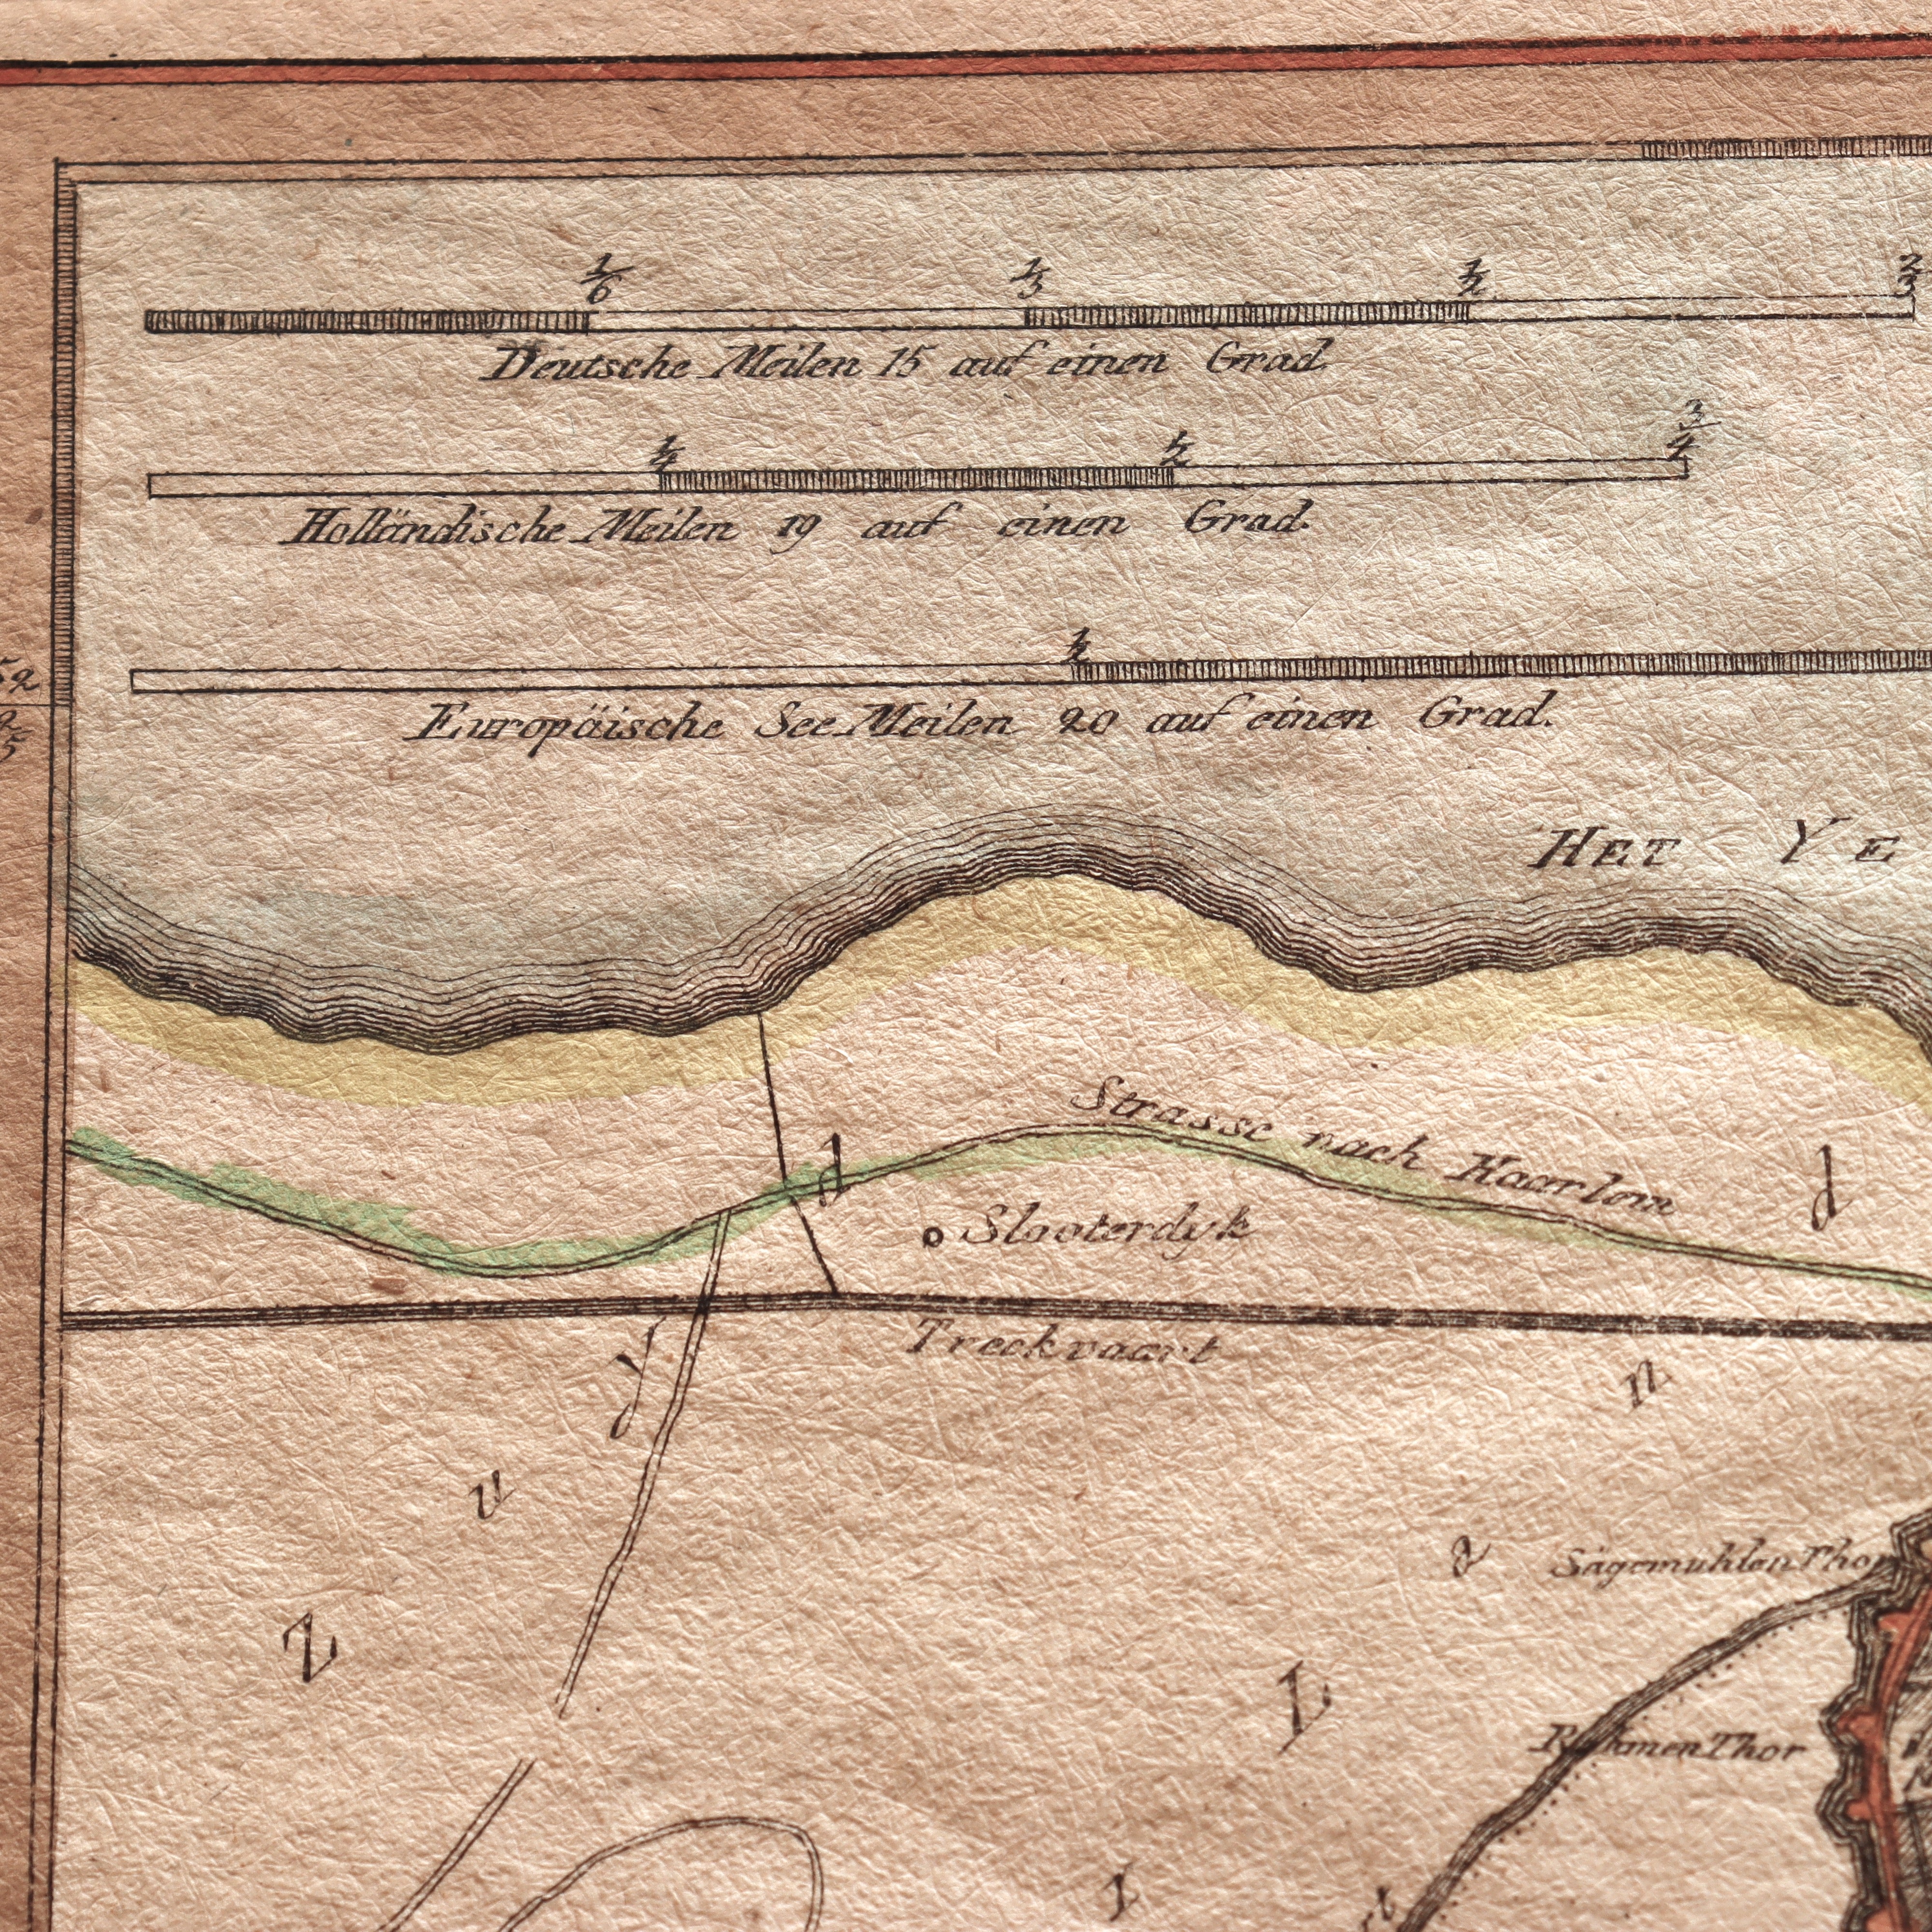 1/6 1/3 1/2 2/3
Deutsche Meilen 15 auf einen Grad.
1/4 1/2 3/4
Holländische Meilen 19 auf einen Grad.
1/2
Europäische See Meilen 20 auf einen Grad.
52
HET YE
Strasse nach Haarlem
d
d
Slooterdyk
Treckvaart
y
n
u
a
Sägemuhlen Thor
Z
L
Thor
r
t